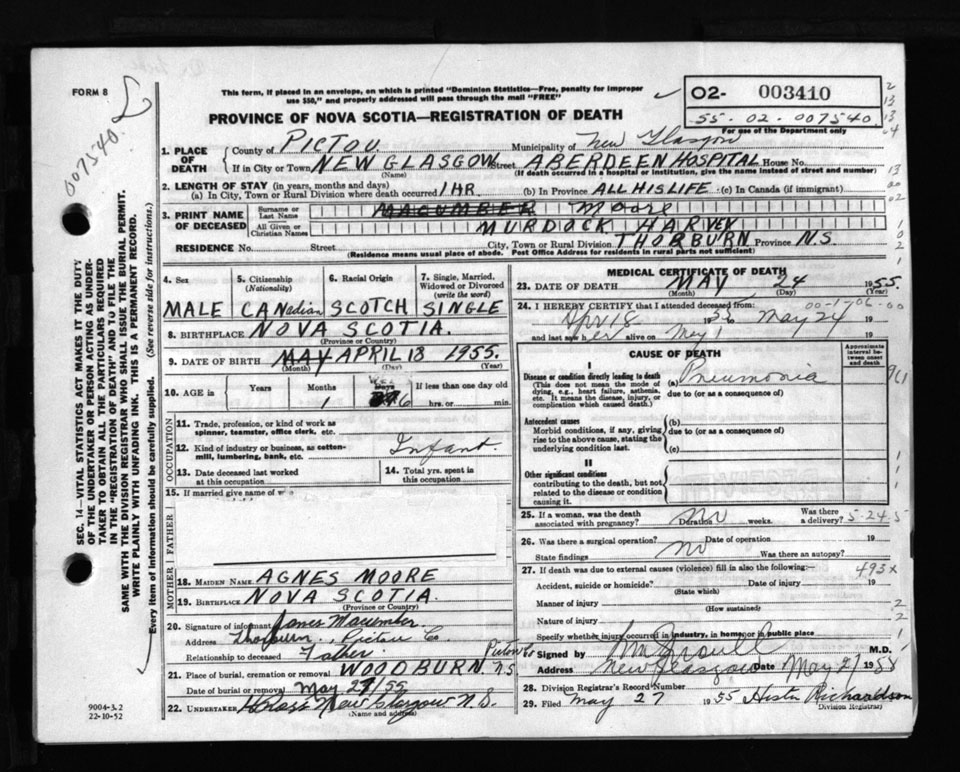 FORM 8
007540.
This form, if placed in an envelope, on which is printed "Dominion Statistics—Free, penalty for improper
use $50," and properly addressed will pass through the mail "FREE"
PROVINCE OF NOVA SCOTIA—REGISTRATION OF DEATH
O2- 003410
55-02-007540
For use of the Department only
1. PLACE OF DEATH
County of PICTOU Municipality of New Glasgow
If in City or Town NEW GLASGOW (Name) Street ABERDEEN HOSPITAL House No.
(If death occurred in a hospital or institution, give the name instead of street and number)
2. LENGTH OF STAY (in years, months and days)
(a) In City, Town or Rural Division where death occurred 1 HR (b) In Province ALL HIS LIFE (c) In Canada (if immigrant)
3. PRINT NAME OF DECEASED
Surname or Last Name MACUMBER Moore
All Given or Christian Names MURDOCK HARVEY
RESIDENCE No. Street City, Town or Rural Division THORBURN Province N.S.
(Residence means usual place of abode. Post Office Address for residents in rural parts not sufficient)
4. Sex 5. Citizenship (Nationality) 6. Racial Origin 7. Single, Married, Widowed or Divorced (write the word)
MALE CANadian SCOTCH SINGLE
8. BIRTHPLACE NOVA SCOTIA.
(Province or Country)
9. DATE OF BIRTH MAY APRIL 18 1955.
(Month) (Day) (Year)
10. AGE in Years Months If less than one day old
1 6 hrs. or min.
OCCUPATION
11. Trade, profession, or kind of work as
spinner, teamster, office clerk, etc.
12. Kind of industry or business, as cotton-
mill, lumbering, bank, etc.
Infant.
13. Date deceased last worked
at this occupation
14. Total yrs. spent in
this occupation
15. If married give name of
FATHER
MOTHER
18. MAIDEN NAME AGNES MOORE
19. BIRTHPLACE NOVA SCOTIA.
(Province or Country)
20. Signature of informant James Macumber.
Address Thorburn, Pictou Co
Relationship to deceased Father
21. Place of burial, cremation or removal WOODBURN Pictou Co N.S
Date of burial or removal May 27/55
22. UNDERTAKER New Glasgow N.S.
MEDICAL CERTIFICATE OF DEATH
23. DATE OF DEATH MAY 24 1955.
(Month) (Day) (Year)
24. I HEREBY CERTIFY that I attended deceased from 00-1706-00
Apr 18 1955 to May 24 19
and last saw her alive on May 1 19
CAUSE OF DEATH
Approximate interval between onset and death
I
Disease or condition directly leading to death
(This does not mean the mode of dying, e.g., heart failure, asthenia, etc. It means the disease, injury, or complication which caused death.)
(a) Pneumonia
due to (or as a consequence of)
Antecedent causes
Morbid conditions, if any, giving rise to the above cause, stating the underlying condition last.
(b)
due to (or as a consequence of)
(c)
II
Other significant conditions
contributing to the death, but not related to the disease or condition causing it.
25. If a woman, was the death
associated with pregnancy? No Duration weeks. Was there a delivery? 5-24-5
26. Was there a surgical operation? No Date of operation 19
State findings Was there an autopsy?
27. If death was due to external causes (violence) fill in also the following: 493X
Accident, suicide or homicide? Date of injury 19
(State which)
Manner of injury
(How sustained)
Nature of injury
Specify whether injury occurred in industry, in home, or in public place
Signed by M.D.
Address New Glasgow Date May 27 1955
28. Division Registrar's Record Number
29. Filed May 27 1955 Hester Richardson
(Division Registrar)
9004-3.2
22-10-52
SEC. 14—VITAL STATISTICS ACT MAKES IT THE DUTY
OF THE UNDERTAKER OR PERSON ACTING AS UNDER-
TAKER TO OBTAIN ALL THE PARTICULARS REQUIRED
IN THE "REGISTRATION OF DEATH" AND TO FILE THE
SAME WITH THE DIVISION REGISTRAR WHO SHALL ISSUE THE BURIAL PERMIT.
WRITE PLAINLY WITH UNFADING INK. THIS IS A PERMANENT RECORD.
Every item of information should be carefully supplied. (See reverse side for instructions.)